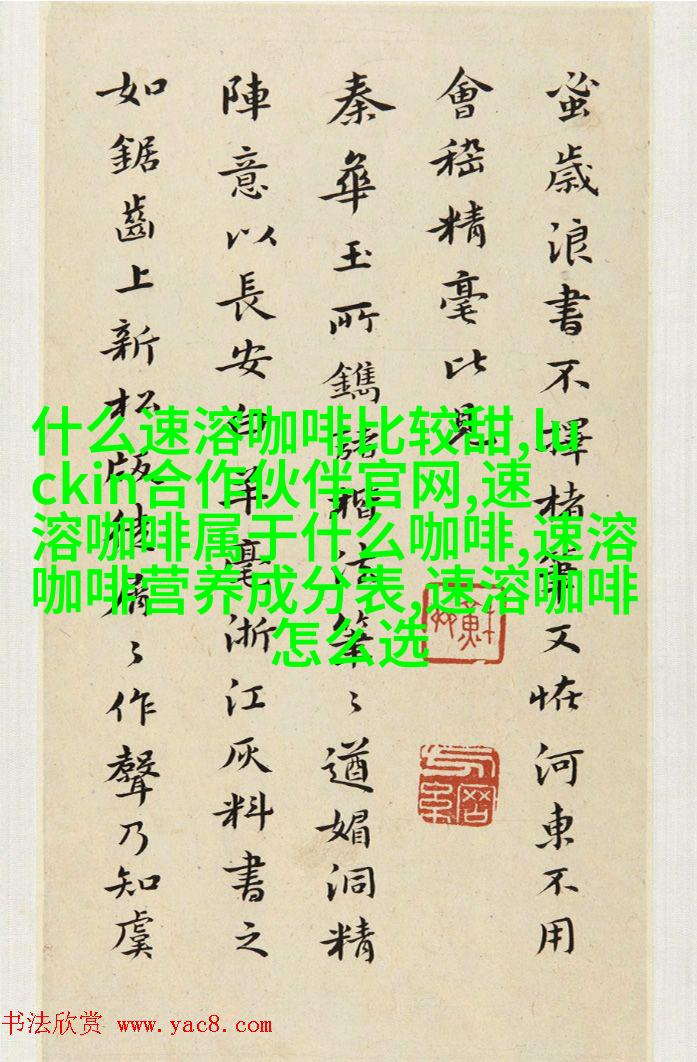 蚤歲浪書不擇楮筆又怪河東不用
會稽精毫比見
秦華玉所鐫諸楷法筆〻遒媚洞精
陣意以長安白羊毫浙江灰料書之
如鋸齒上新松版徒屑〻作聲乃知虞
什么速溶咖啡比较甜,lu
ckin合作伙伴官网,速
溶咖啡属于什么咖啡,速溶
咖啡营养成分表,速溶咖啡
怎么选
书法欣赏 www.yac8.com